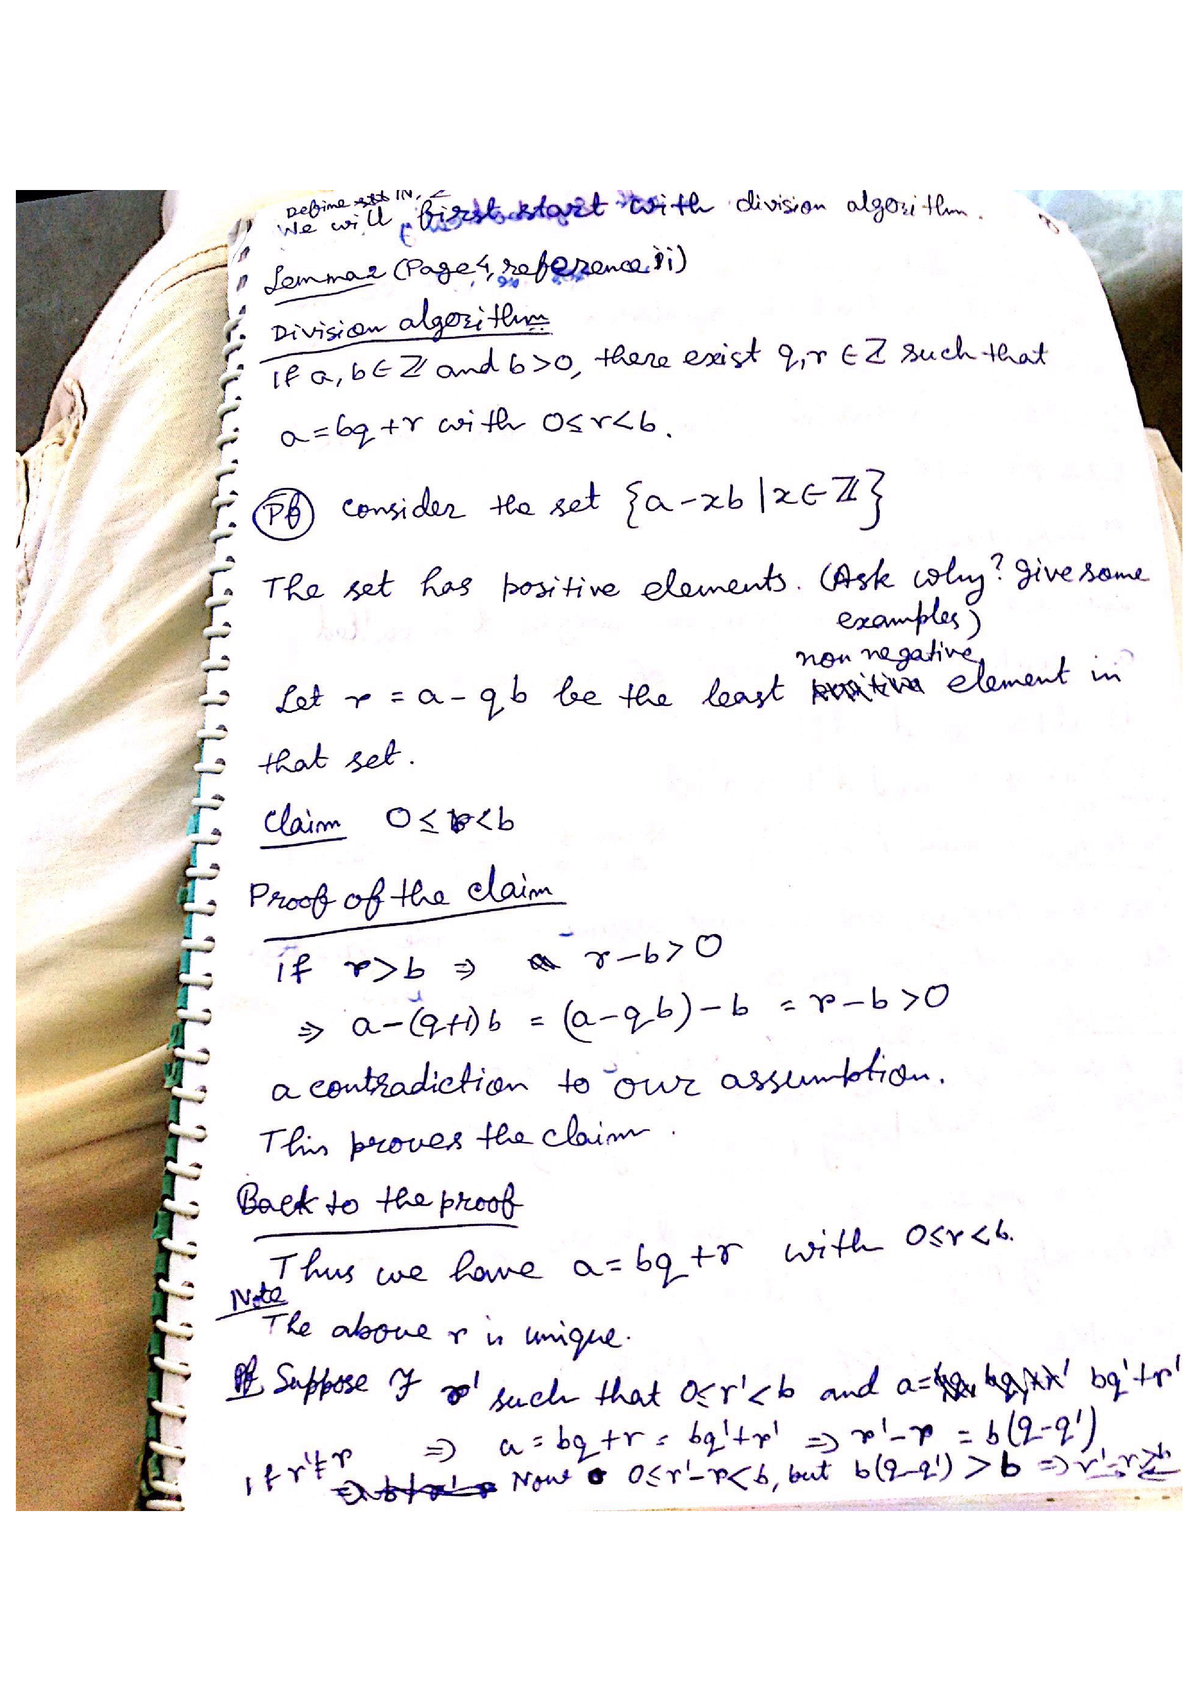 Define set IN, Z
We will first start with division algorithm.
Lemma 2 (Page 4, reference ii)
Division algorithm
If a, b ∈ ℤ and b>0, there exist q, r ∈ ℤ such that
a = bq + r with 0≤r<b.
Pf consider the set {a-xb | x ∈ ℤ}
The set has positive elements. (Ask why? give some
examples)
non negative
Let r = a - qb be the least element in
that set.
Claim 0 ≤ r < b
Proof of the claim
if r > b ⇒ r-b > 0
⇒ a-(q+1)b = (a-qb)-b = r-b > 0
a contradiction to our assumption.
This proves the claim.
Back to the proof
Thus we have a = bq + r with 0≤r<b.
Note
The above r is unique.
Pf Suppose ∃ r' such that 0≤r'<b and a= bq'+r'
⇒ a = bq + r = bq'+r' ⇒ r'-r = b(q-q')
If r'≠r Now 0≤r'-r<b, but b(q-q') > b ⇒ r'-r≥b